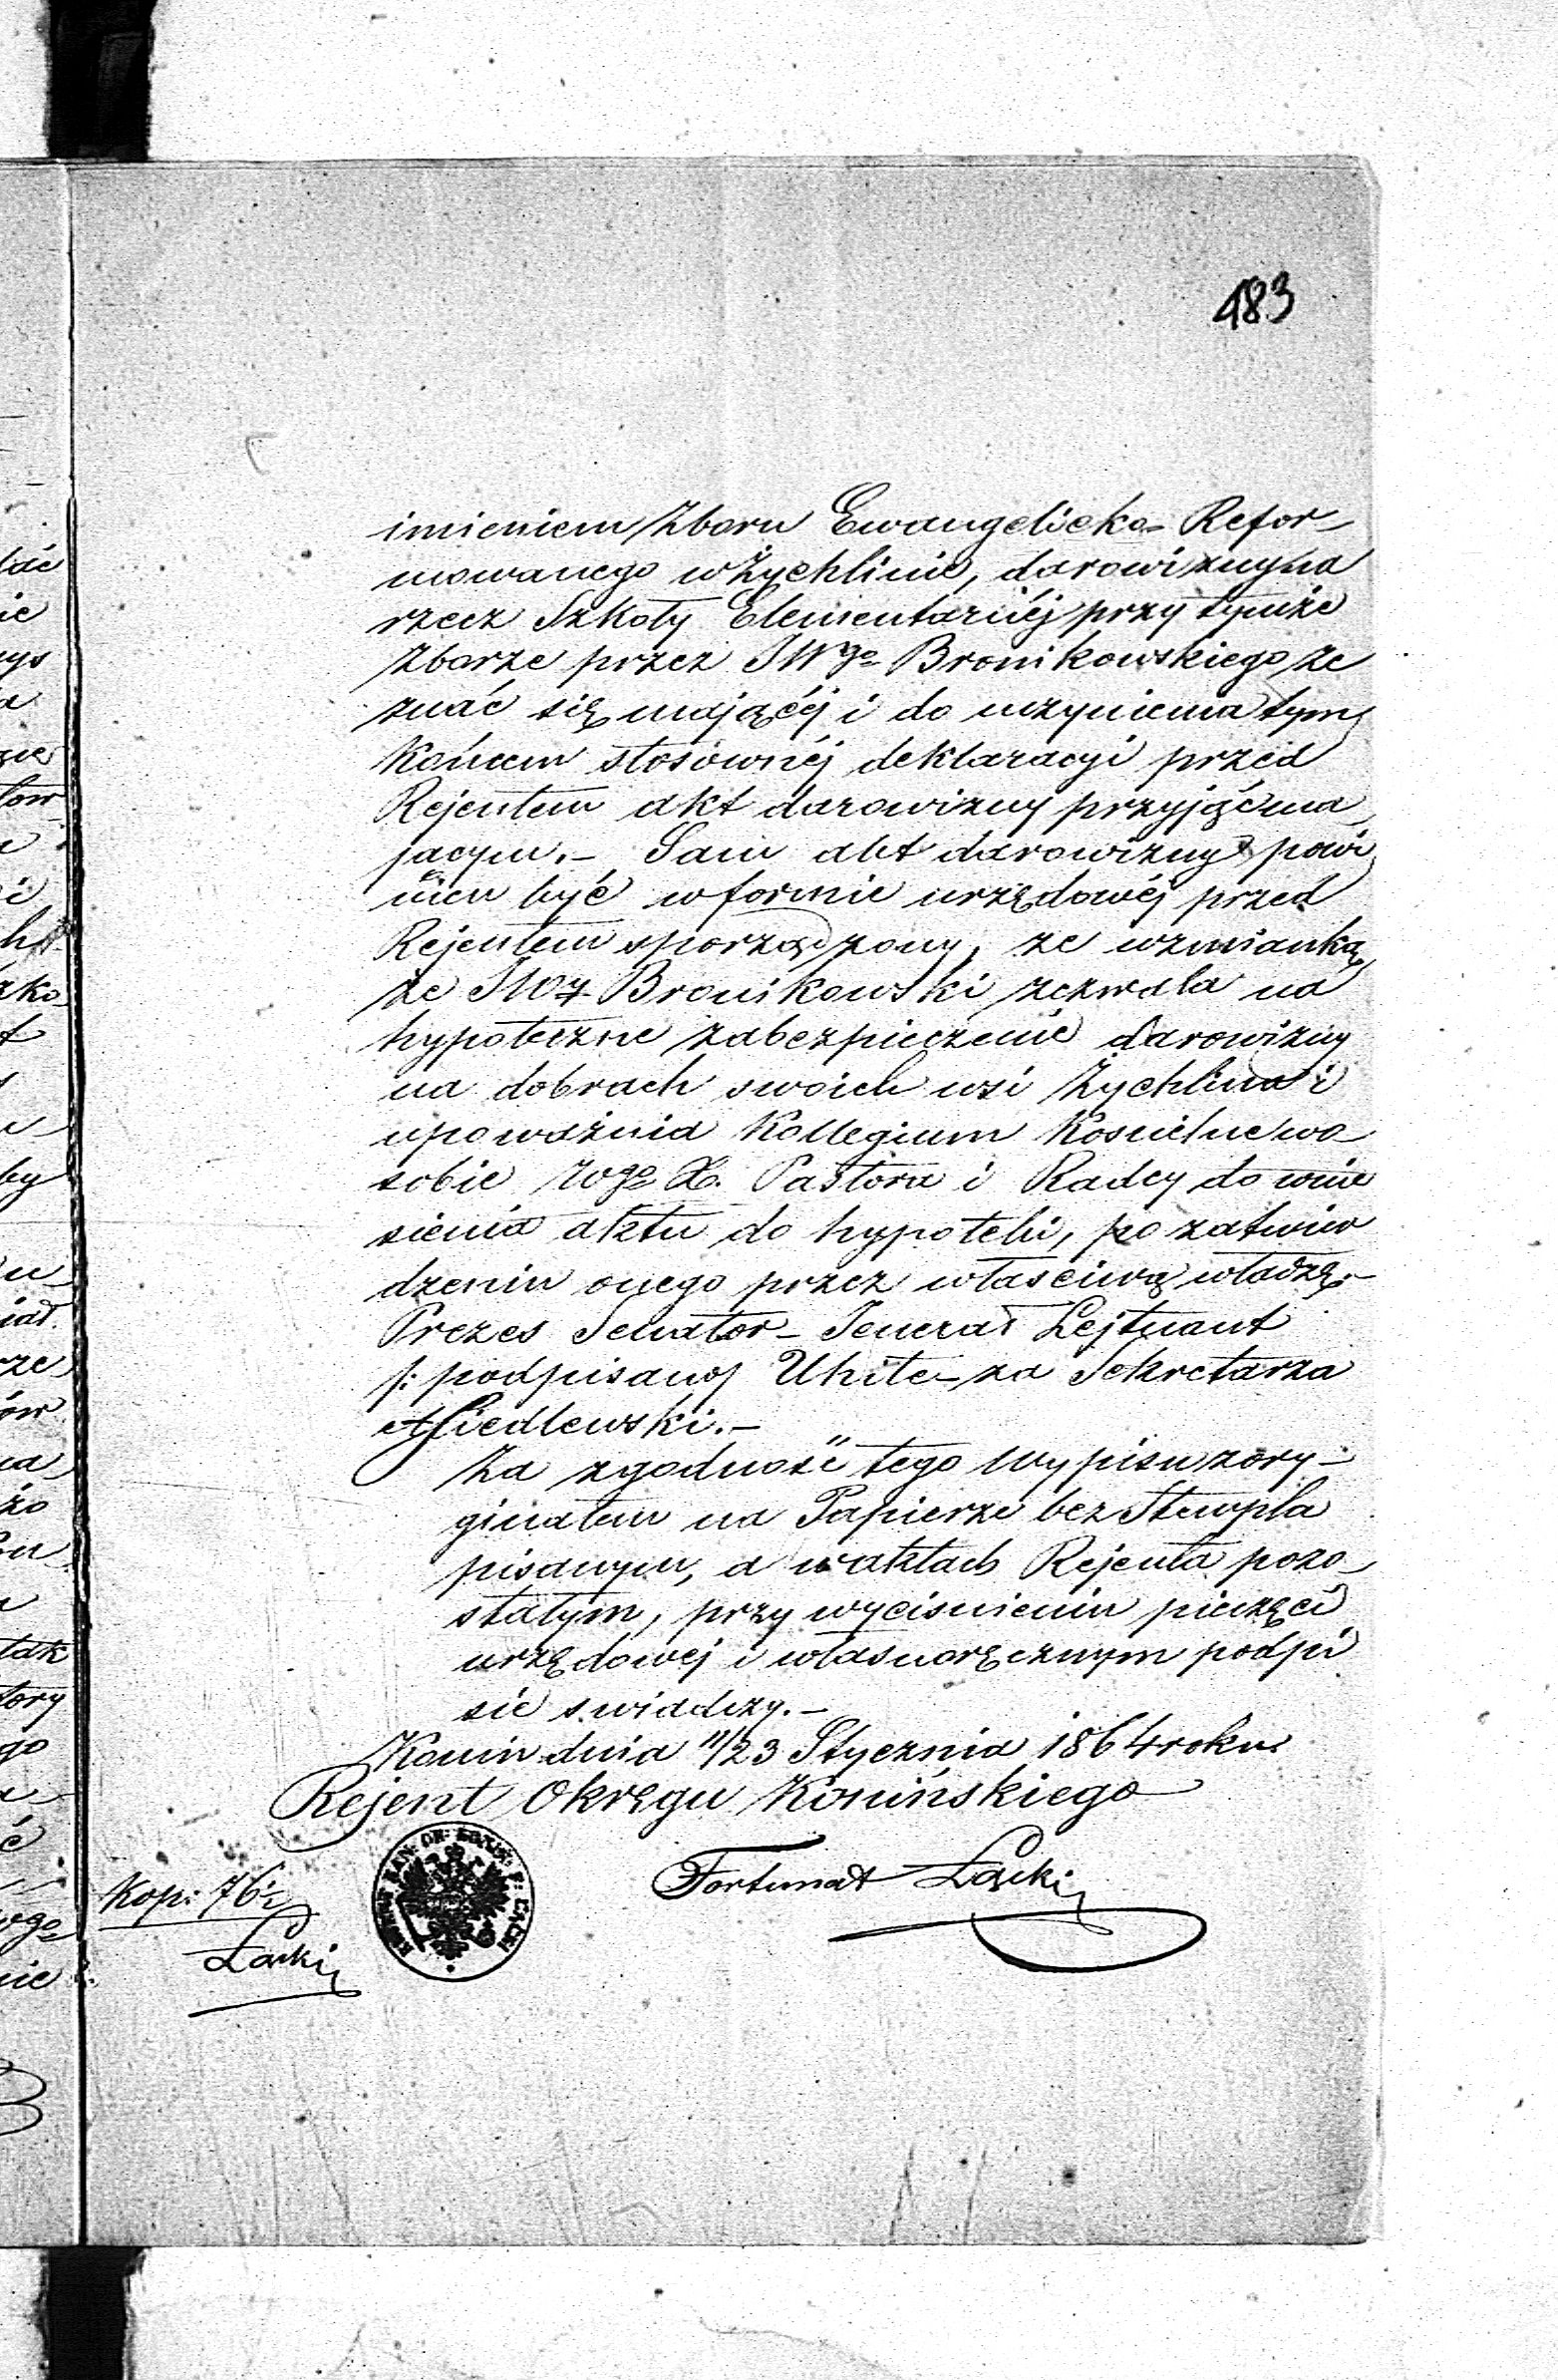 183
imieniem Zboru Ewangelicko-Refor-
mowanego w Żychlinie, darowizny na
rzecz Szkoły Elementarnéj przy tymże
Zborze przez JWgo Bronikowskiego ze
znać się mającéj i do uczynienia tym
końcem stosownéj deklaracyi przed
Rejentem akt darowizny przyjąć ma
jącym.- Sam akt darowizny powi
nien być w formie urzędowéj przed
Rejentem sporządzony, ze wzmianką
że JWż Bronikowski zezwala na
hypoteczne zabezpieczenie darowizny
na dobrach swoich wsi Żychlina i
upoważnia Kollegium Kościelne wo
sobie Wgo X. Pastora i Radcy do wnie
sienia aktu do hypoteki, po zatwier
dzeniu onego przez właściwą władzę.-
Prezes Senator- Jenerał Lejtnant
/: podpisany/ White- za Sekretarza
A Siedlewski.-
Za zgodność tego Wypisu z ory-
ginałem na Papierze bez Stempla
pisanym, a w aktach Rejenta pozo-
stałym, przy wyciśnieniu pieczęci
urzędowej i własnoręcznym podpi
sie świadczy.-
Konin dnia 11/23 Stycznia 1864 roku
Rejent Okręgu Konińskiego
Fortunat Łącki
Kop: 76½
Łącki